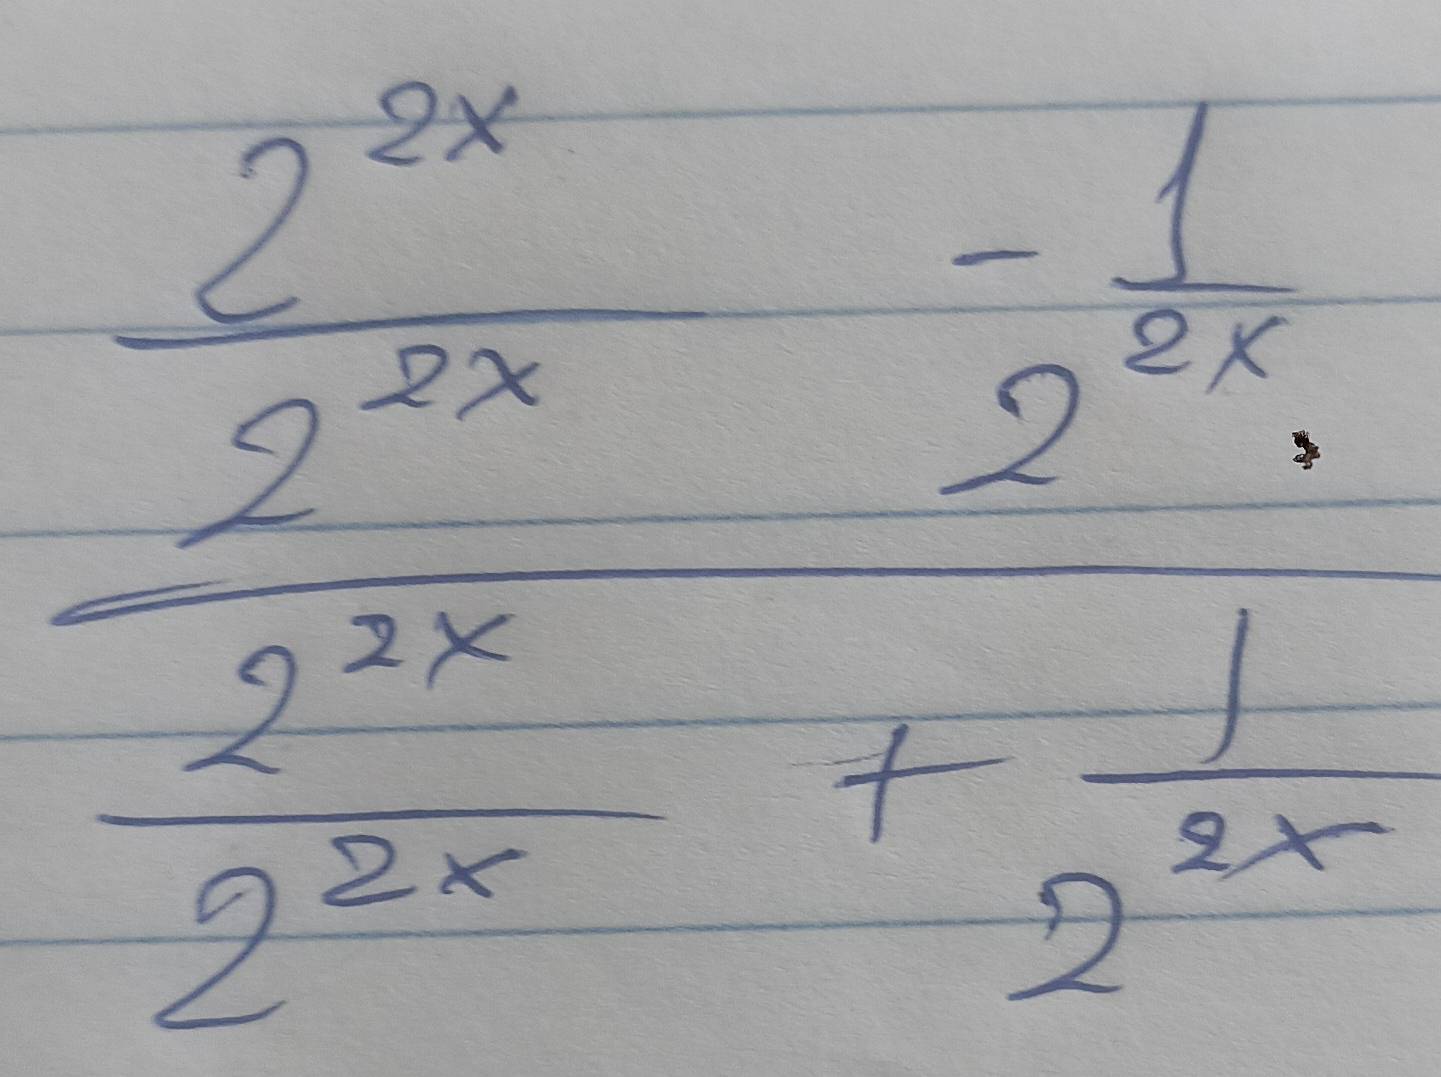 \frac{\frac{2^{2x}}{2^{2x}} - \frac{1}{2^{2x}}}{\frac{2^{2x}}{2^{2x}} + \frac{1}{2^{2x}}}